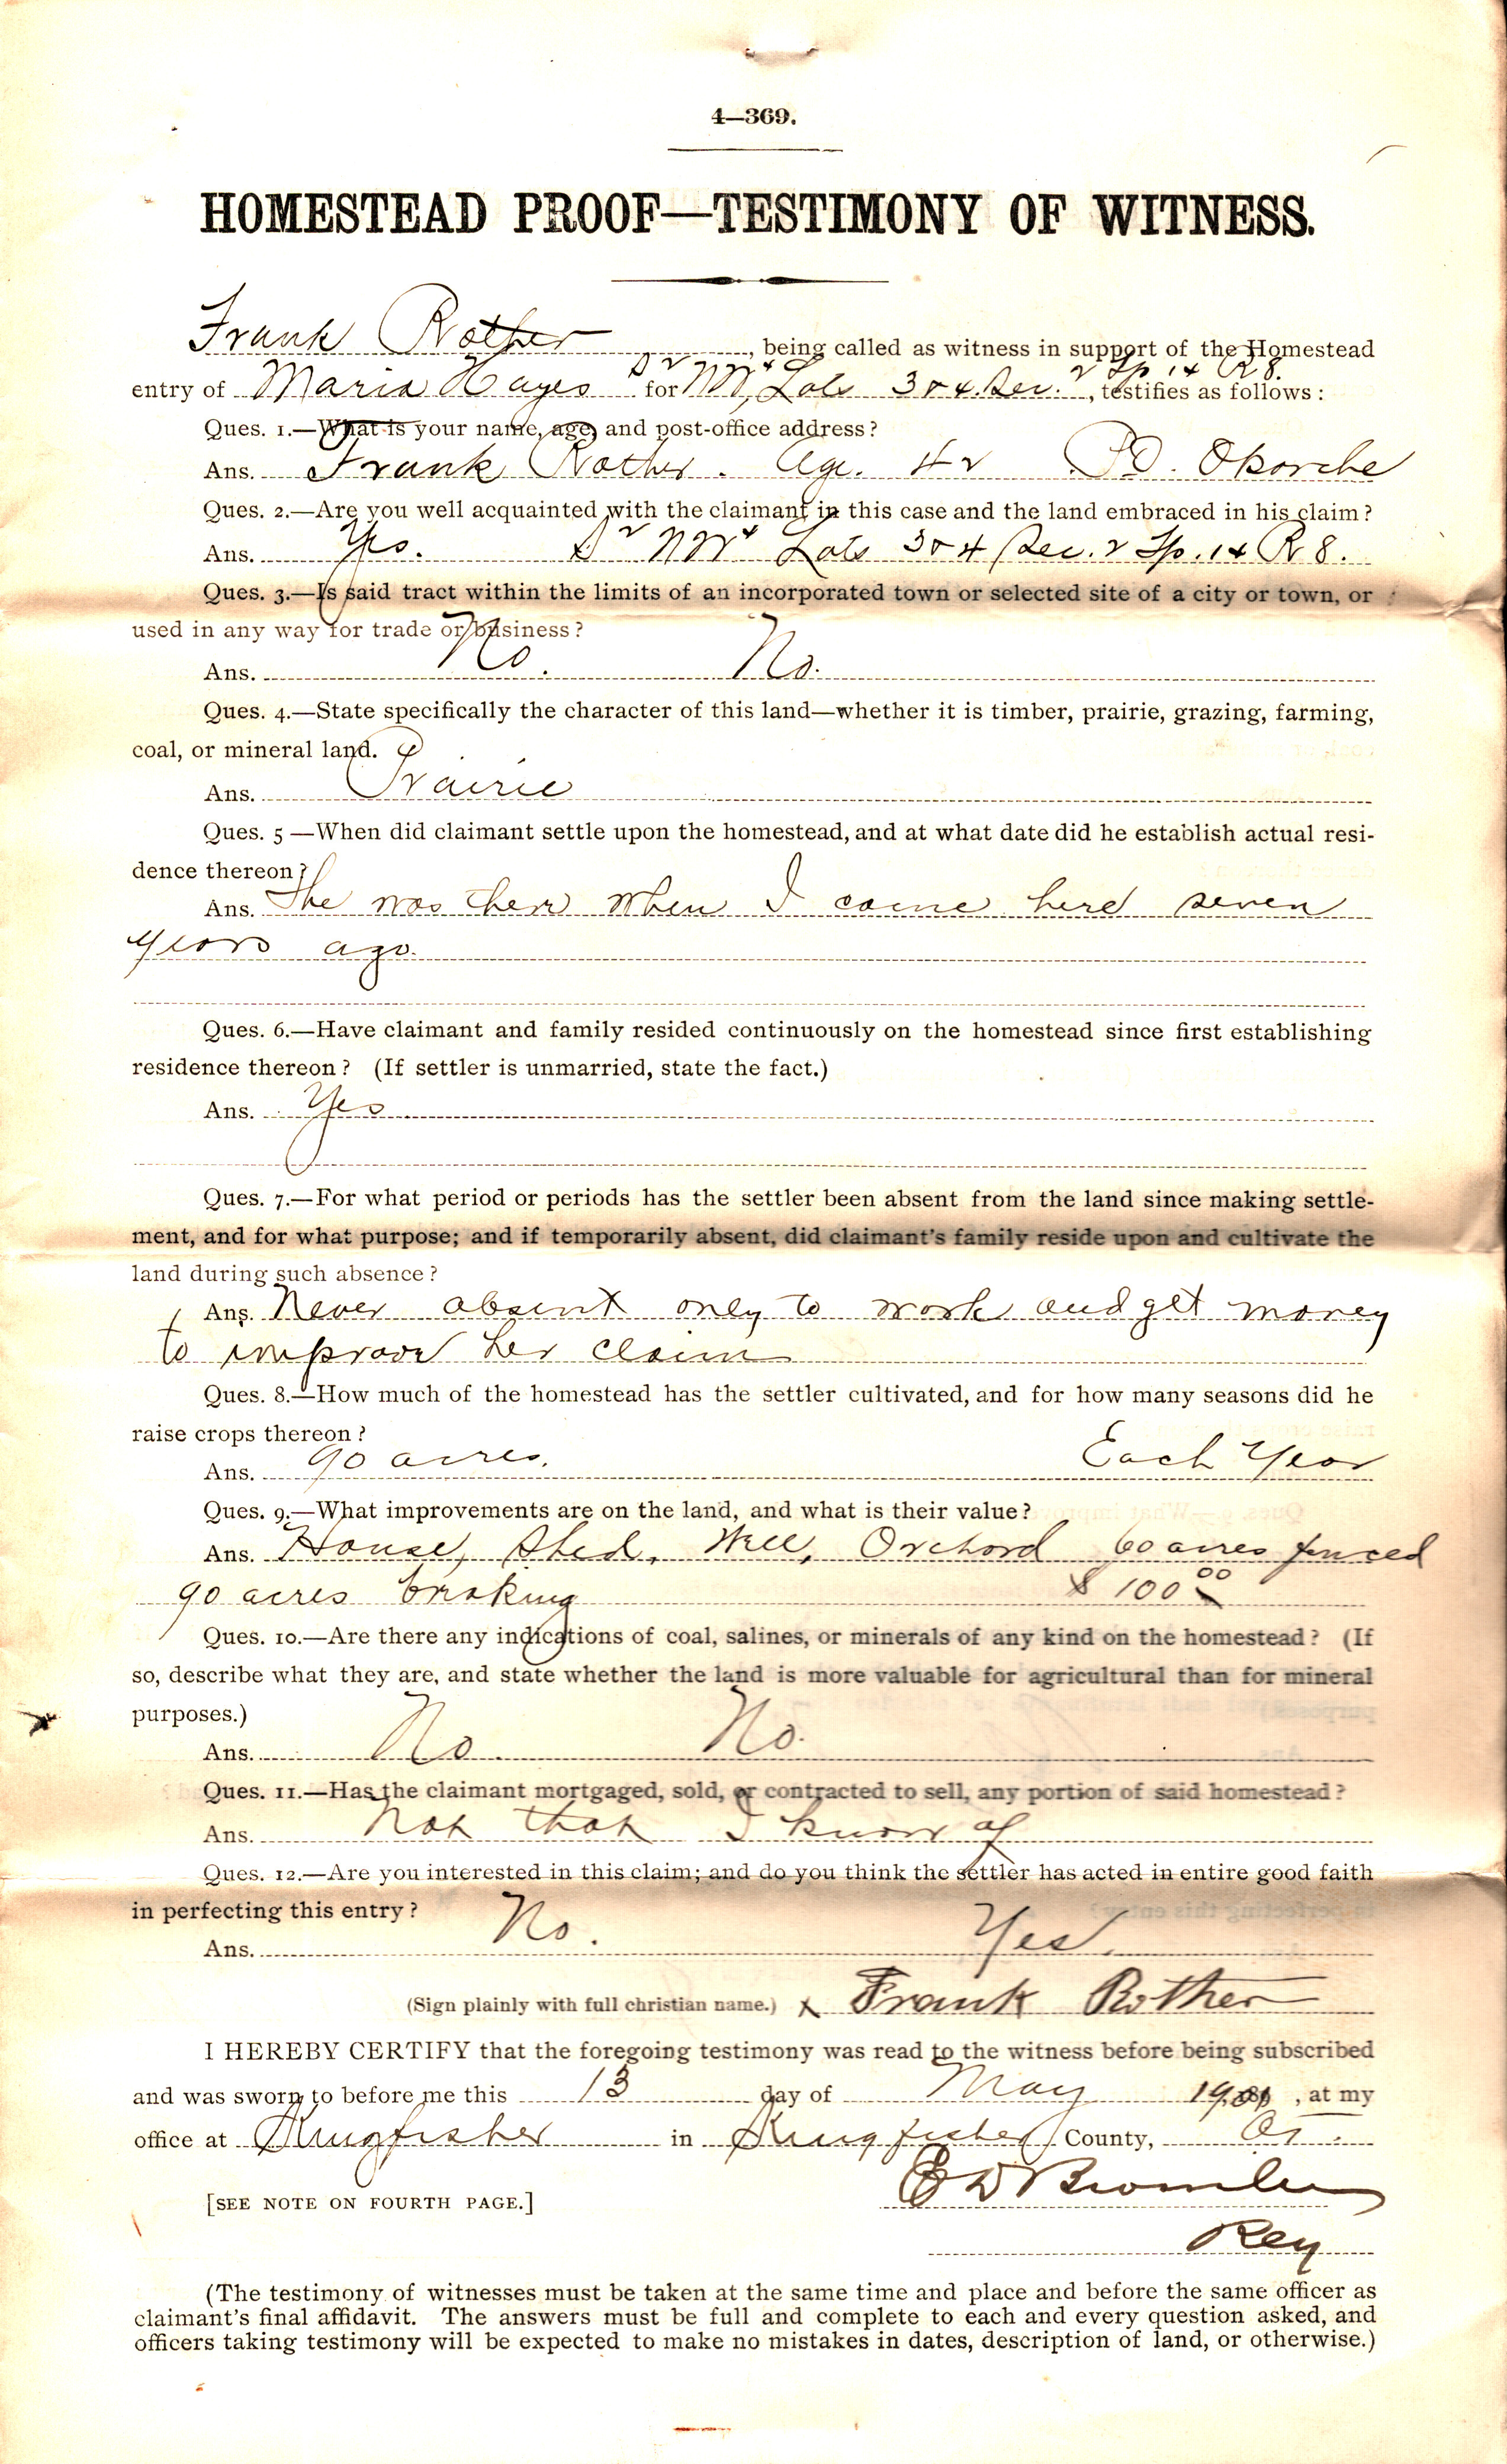 4—369.
HOMESTEAD PROOF—TESTIMONY OF WITNESS.
Frank Rother, being called as witness in support of the Homestead
entry of Maria Hayes for S2 NW4 Lots 3 & 4. Sec. 2 Tp 14 R 8., testifies as follows:
Ques. 1.—What is your name, age, and post-office address?
Ans. Frank Rother. Age. 42 PO. Okarche
Ques. 2.—Are you well acquainted with the claimant in this case and the land embraced in his claim?
Ans. Yes. S2 NW4 Lots 3 & 4 Sec. 2 Tp. 14 R 8.
Ques. 3.—Is said tract within the limits of an incorporated town or selected site of a city or town, or
used in any way for trade or business?
Ans. No. No.
Ques. 4.—State specifically the character of this land—whether it is timber, prairie, grazing, farming,
coal, or mineral land.
Ans. Prairie
Ques. 5—When did claimant settle upon the homestead, and at what date did he establish actual resi-
dence thereon?
Ans. She was there when I came here seven
years ago.
Ques. 6.—Have claimant and family resided continuously on the homestead since first establishing
residence thereon? (If settler is unmarried, state the fact.)
Ans. Yes
Ques. 7.—For what period or periods has the settler been absent from the land since making settle-
ment, and for what purpose; and if temporarily absent, did claimant's family reside upon and cultivate the
land during such absence?
Ans. Never absent only to work and get money
to improve her claim
Ques. 8.—How much of the homestead has the settler cultivated, and for how many seasons did he
raise crops thereon?
Ans. 90 acres. Each Year
Ques. 9.—What improvements are on the land, and what is their value?
Ans. House, Shed, Well, Orchard 60 acres fenced
90 acres broking $100 00
Ques. 10.—Are there any indications of coal, salines, or minerals of any kind on the homestead? (If
so, describe what they are, and state whether the land is more valuable for agricultural than for mineral
purposes.)
Ans. No No.
Ques. 11.—Has the claimant mortgaged, sold, or contracted to sell, any portion of said homestead?
Ans. Not that I know of
Ques. 12.—Are you interested in this claim; and do you think the settler has acted in entire good faith
in perfecting this entry?
Ans. No. Yes.
(Sign plainly with full christian name.) x Frank Rother
I HEREBY CERTIFY that the foregoing testimony was read to the witness before being subscribed
and was sworn to before me this 13 day of May 1901, at my
office at Kingfisher in Kingfisher County, OT.
[SEE NOTE ON FOURTH PAGE.]
E D Bromle
Reg
(The testimony of witnesses must be taken at the same time and place and before the same officer as
claimant's final affidavit. The answers must be full and complete to each and every question asked, and
officers taking testimony will be expected to make no mistakes in dates, description of land, or otherwise.)